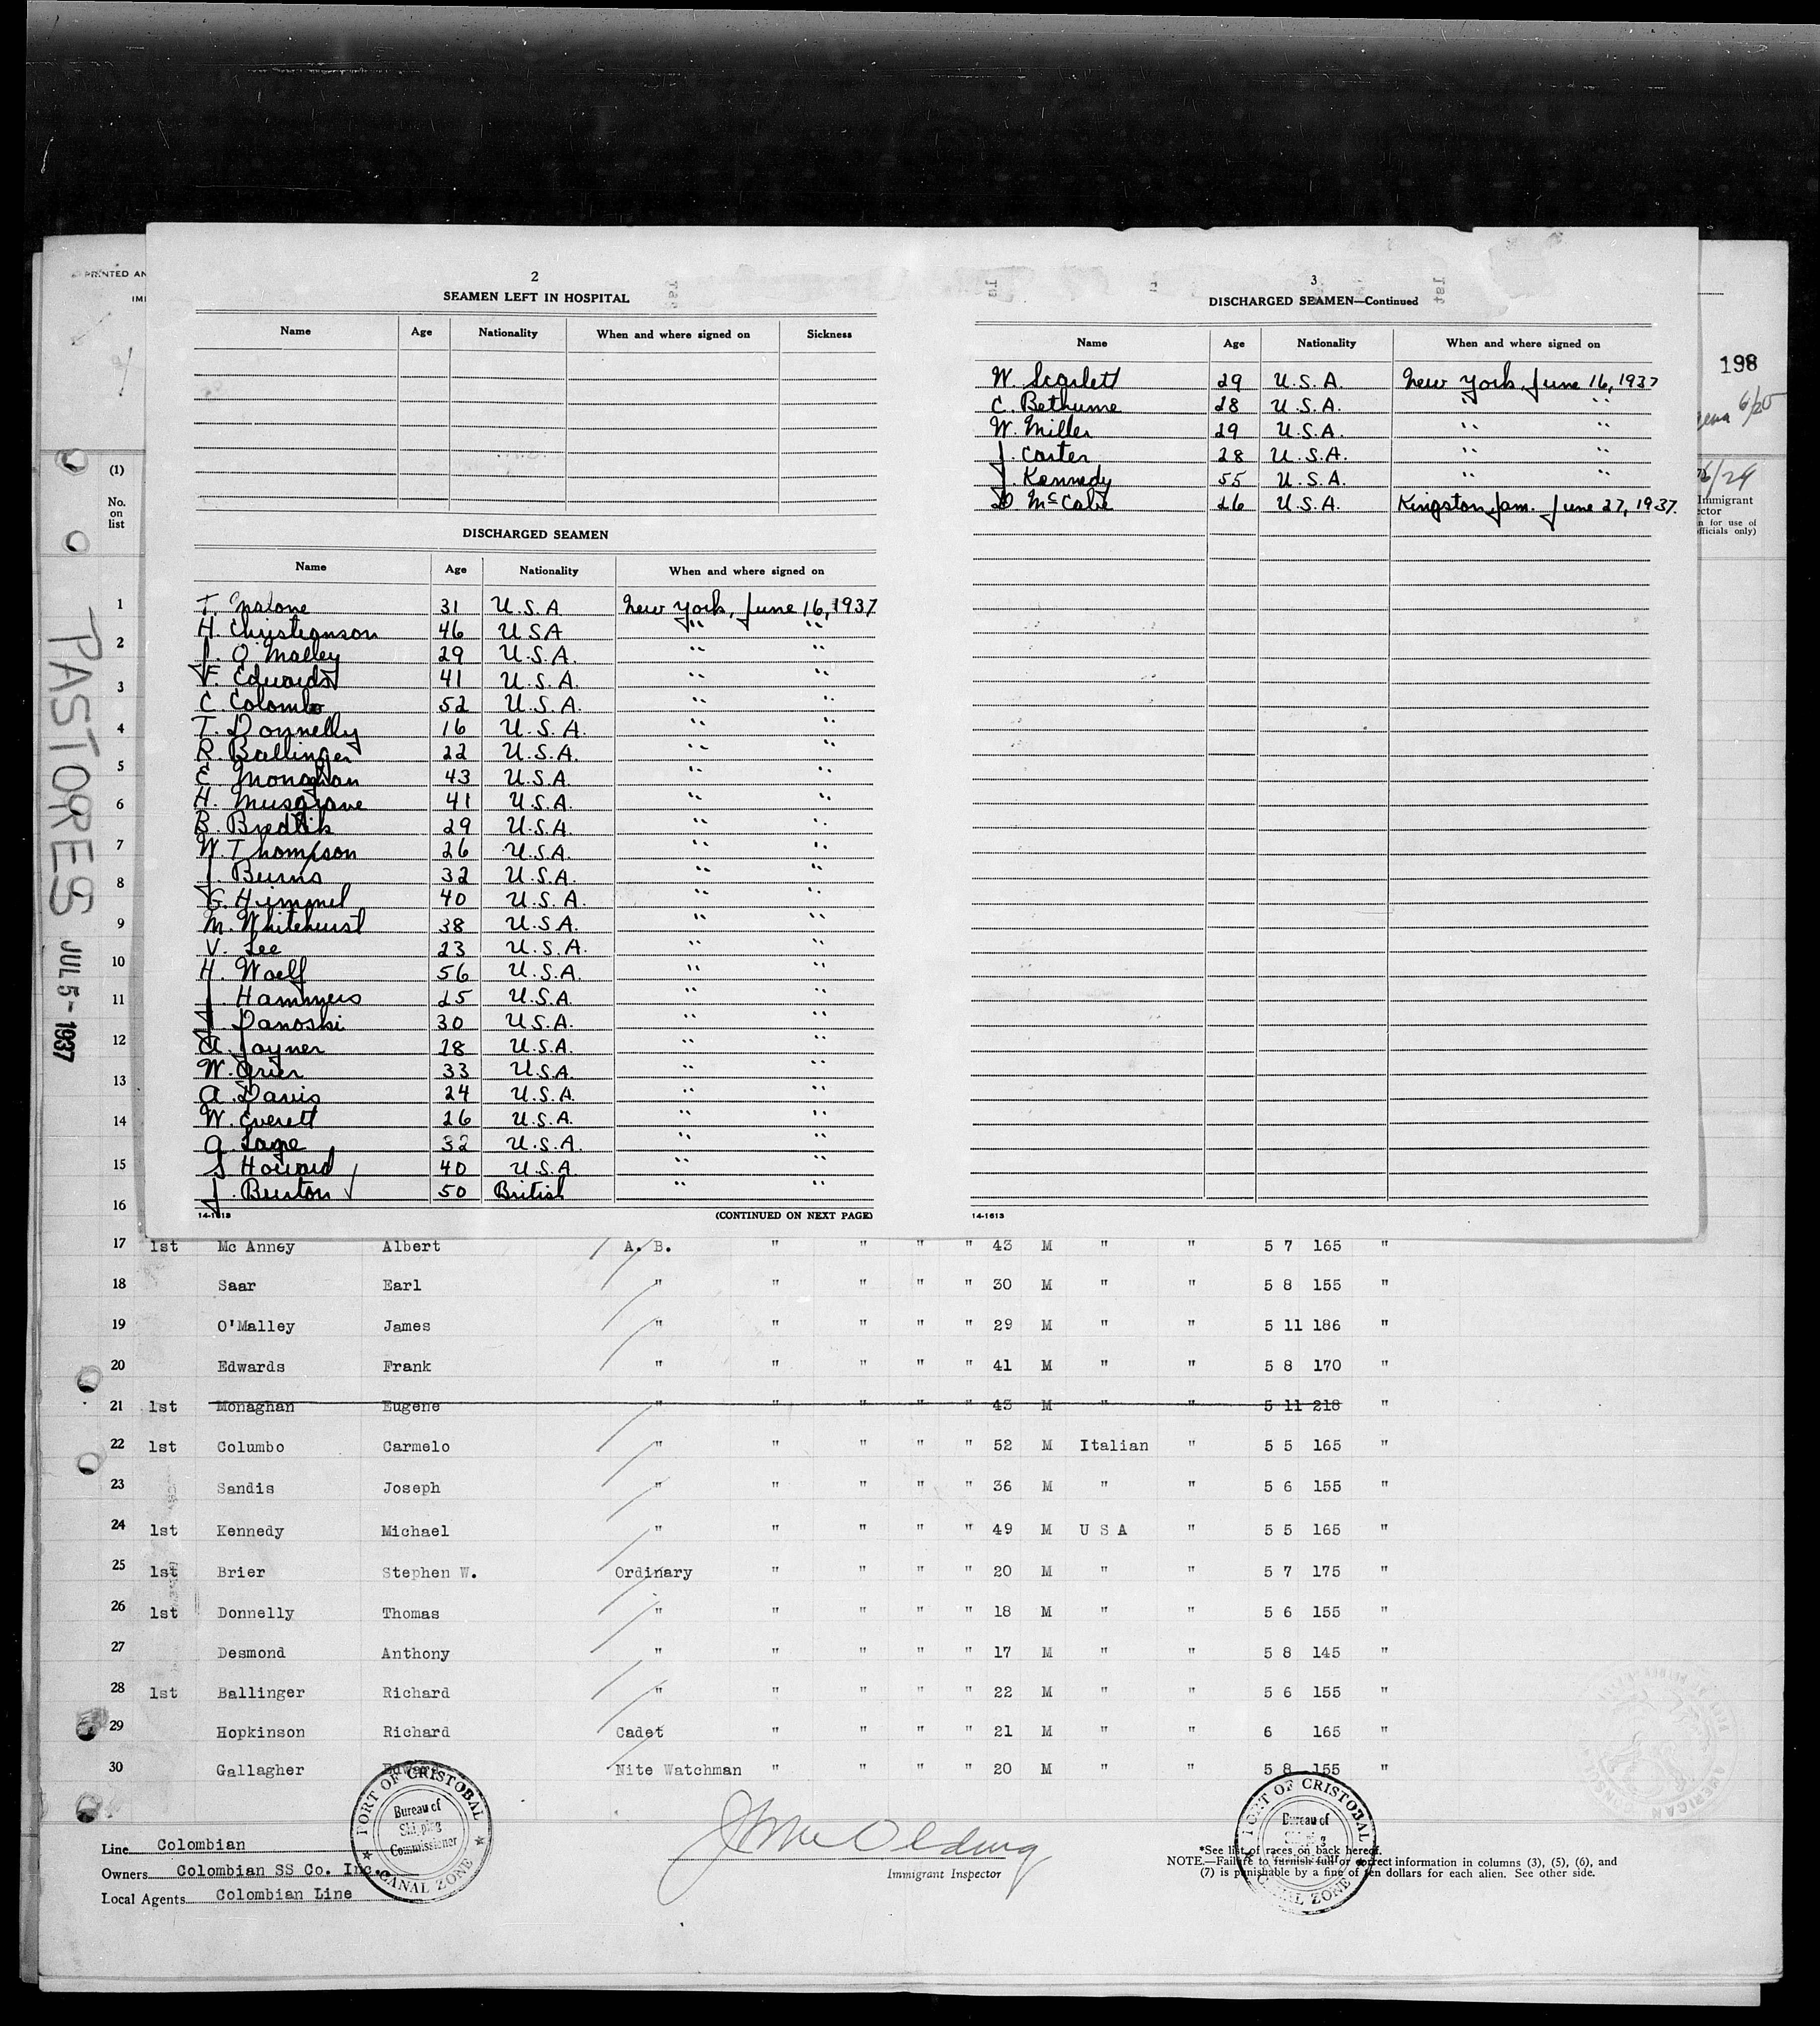 PRINTED AN
IMI
198
6/20
6/29
(1)
No.
on
list
Immigrant
ector
n for use of
fficials only)
PASTORES JUL 5-1937
2
SEAMEN LEFT IN HOSPITAL
Name Age Nationality When and where signed on Sickness
DISCHARGED SEAMEN
Name Age Nationality When and where signed on
31 U.S.A New York, June 16, 1937
H. Christianson 46 U S A " "
J. O Malley 29 U.S.A. " "
F. Edwards 41 U.S.A. " "
C. Colombo 52 U.S.A. " "
T. Donnelly 16 U.S.A. " "
R. Ballinger 22 U.S.A. " "
E. Monaghan 43 U.S.A. " "
H. Musgrave 41 U.S.A. " "
B. 29 U.S.A. " "
W. Thompson 26 U.S.A. " "
J. Burns 32 U.S.A. " "
G. Himmel 40 U.S.A. " "
M. Whitehurst 38 U.S.A. " "
V. Lee 23 U.S.A. " "
H. Woelf 56 U.S.A. " "
J. Hammers 25 U.S.A. " "
J. Panoski 30 U.S.A. " "
A. Joyner 28 U.S.A. " "
W. Grier 33 U.S.A. " "
A. Davis 24 U.S.A. " "
W. Everett 26 U.S.A. " "
32 U.S.A. " "
S Howard 40 U.S.A. " "
J. Burton ✓ 50 British " "
14-1613 (CONTINUED ON NEXT PAGE)
3
DISCHARGED SEAMEN—Continued
Name Age Nationality When and where signed on
W. Scarlett 29 U.S.A. New York, June 16, 1937
C. Bethume 28 U.S.A. " "
W. Miller 29 U.S.A. " "
J. Carter 28 U.S.A. " "
J. Kennedy 55 U.S.A. " "
D McCabe 26 U.S.A. Kingston, Jam. June 27, 1937.
14-1613
1
2
3
4
5
6
7
8
9
10
11
12
13
14
15
16
17 1st Mc Anney Albert A. B. " " " " 43 M " " 5 7 165 "
18 Saar Earl " " " " " 30 M " " 5 8 155 "
19 O'Malley James " " " " " 29 M " " 5 11 186 "
20 Edwards Frank " " " " " 41 M " " 5 8 170 "
21 1st Monaghan Eugene " " " " " 43 M " " 5 11 218 "
22 1st Columbo Carmelo " " " " " 52 M Italian " 5 5 165 "
23 Sandis Joseph " " " " " 36 M " " 5 6 155 "
24 1st Kennedy Michael " " " " " 49 M U S A " 5 5 165 "
25 1st Brier Stephen W. Ordinary " " " " 20 M " " 5 7 175 "
26 1st Donnelly Thomas " " " " " 18 M " " 5 6 155 "
27 Desmond Anthony " " " " " 17 M " " 5 8 145 "
28 1st Ballinger Richard " " " " " 22 M " " 5 6 155 "
29 Hopkinson Richard Cadet " " " " 21 M " " 6 165 "
30 Gallagher Edward Nite Watchman " " " " 20 M " " 5 8 155 "
PORT OF CRISTOBAL
Bureau of
Shipping
Commissioner
CANAL ZONE
PORT OF CRISTOBAL
Bureau of
Shipping
CANAL ZONE
Line Colombian
Owners Colombian SS Co. Inc.
Local Agents Colombian Line
Immigrant Inspector
*See list of races on back hereof.
NOTE.—Failure to furnish full or correct information in columns (3), (5), (6), and
(7) is punishable by a fine of ten dollars for each alien. See other side.